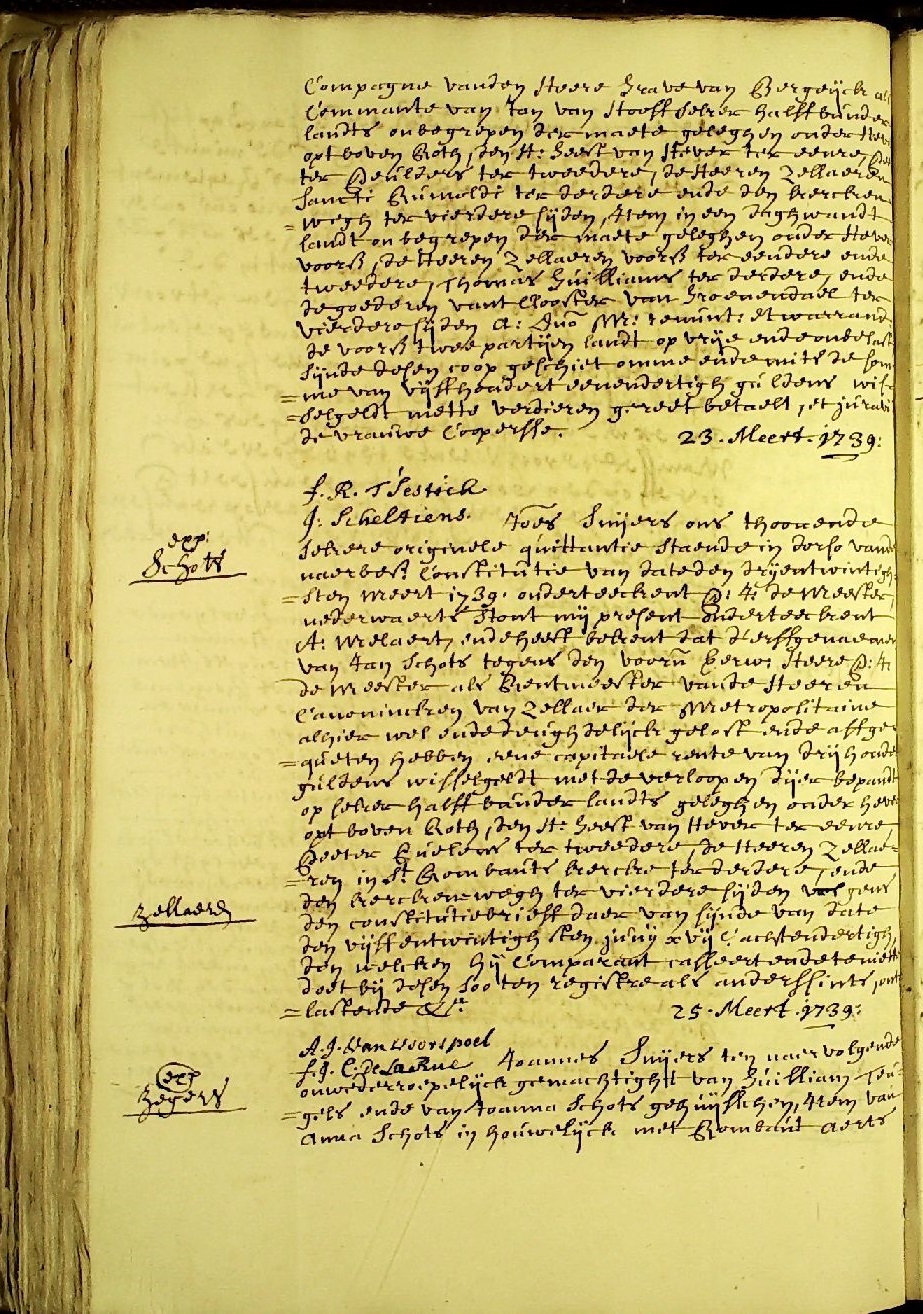 Compagne vanden Heere Grave van Bergeijck als
Commante van Jan van Hooff seker halff bunder
landts onbegrepen der maete geleghen onder Hever
opt boven Roth, den H: Geest van Hever ter eenre,
ter tweedere, de Heeren Zellaeren
Sancti Rumoldi ter derdere ende den kercken
=wegh ter vierdere sijden, Item in een daghwandt
landt onbegrepen der maete geleghen onder Hever
voors, de Heeren Zellaeren voors ter eendere ende
tweedere, Thomas Guilliams ter derdere, ende
de goederen vant Clooster van Groenendael ter
vierdere sijden A: Quo Mr: tenint: et warrand:
de voors twee partijen landt op vrije ende onbelast
sijnde desen coop geschiet omme ende mits de som
=me van vijffhondert eenendertigh guldens wis=
=selgeldt mette verdieren gereet betaelt, et juravit
de vrauwe Coopersse. 23. Meert. 1739:
f. R. T'Sestich
J: Scheltiens. Joes Suijers ons thoonende
exp:
Schots
sekere originele quittantie staende in dorso vande
naerbes: Constitutie van date den drijentwintigh
=sten Meert 1739. onderteeckent P: J: de Meester,
nederwaerts stont mij present onderteeckent
A: Melaert, ende heeft bekent dat d'erffgenaemen
van Jan Schots tegens den voorn Eerw: Heere P: J:
de Meester als Rentmeester vande Heeren
Canonincken van Zellaer der Metropolitaine
alhier wel ende deughdelijck gelost ende affge=
=queten hebben eene capitaele rente van drij hondert
guldens wisselgeldt met de verloopen dijer bepandt
op seker halff bunder landts geleghen onder hever
opt boven Roth, den H: Geest van Hever ter eenre,
Peeter ter tweedere, de Heeren Zellae=
=ren in St Rombauts kercke ter derdere, ende
den kerckenwegh ter vierdere sijden volgens
Zellaeren
den constitutiebrieff daer van sijnde van date
den vijffentwintighsten junij xvij C achtendertigh,
den welcken hij Comparant casseert ende teniette
doet bij desen soo ten registre als anderssints, ont
=lastende &a. 25. Meert. 1739:
A. J. Van Voorspoel
f. J. C. De La Rue Joannes Suijers ten naervolgende
exp
Zegers
onwederroepelijck gemachtight van Guilliam Teu=
=gels ende van Joanna Schots gehuijsschen, Item van
Anna Schots in houwelijck met Rombaut Aerts